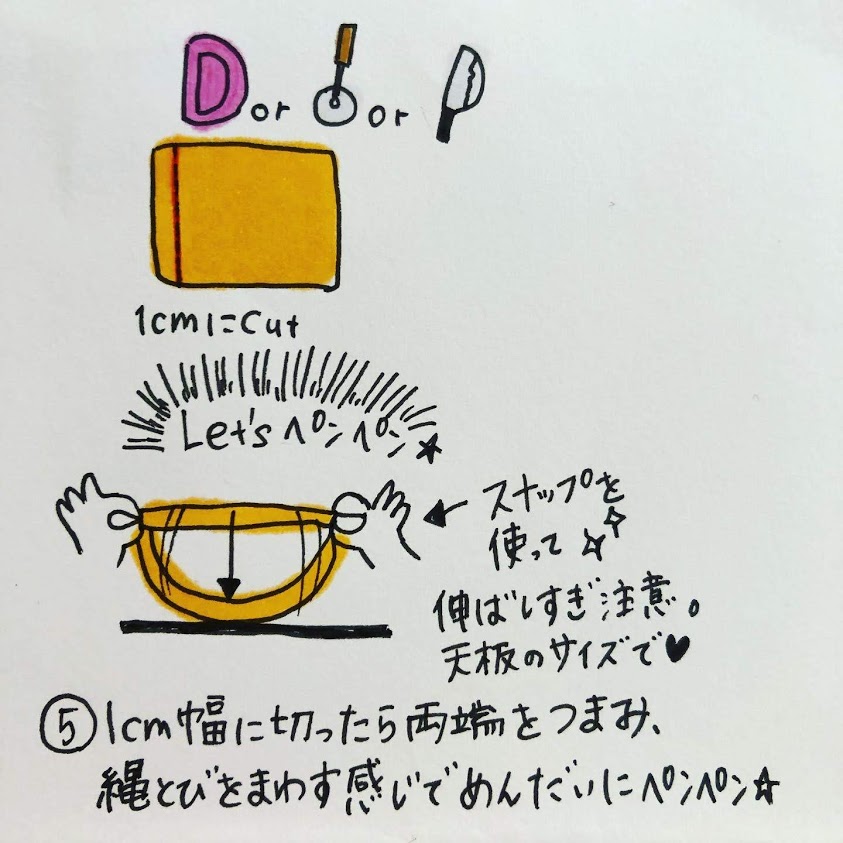 D or or
1cmにCut
Let's ペンペン★
スナップを
使って
伸ばしすぎ注意。
天板のサイズで♥
⑤1cm幅に切ったら両端をつまみ、
縄とびをまわす感じでめんだいにペンペン☆